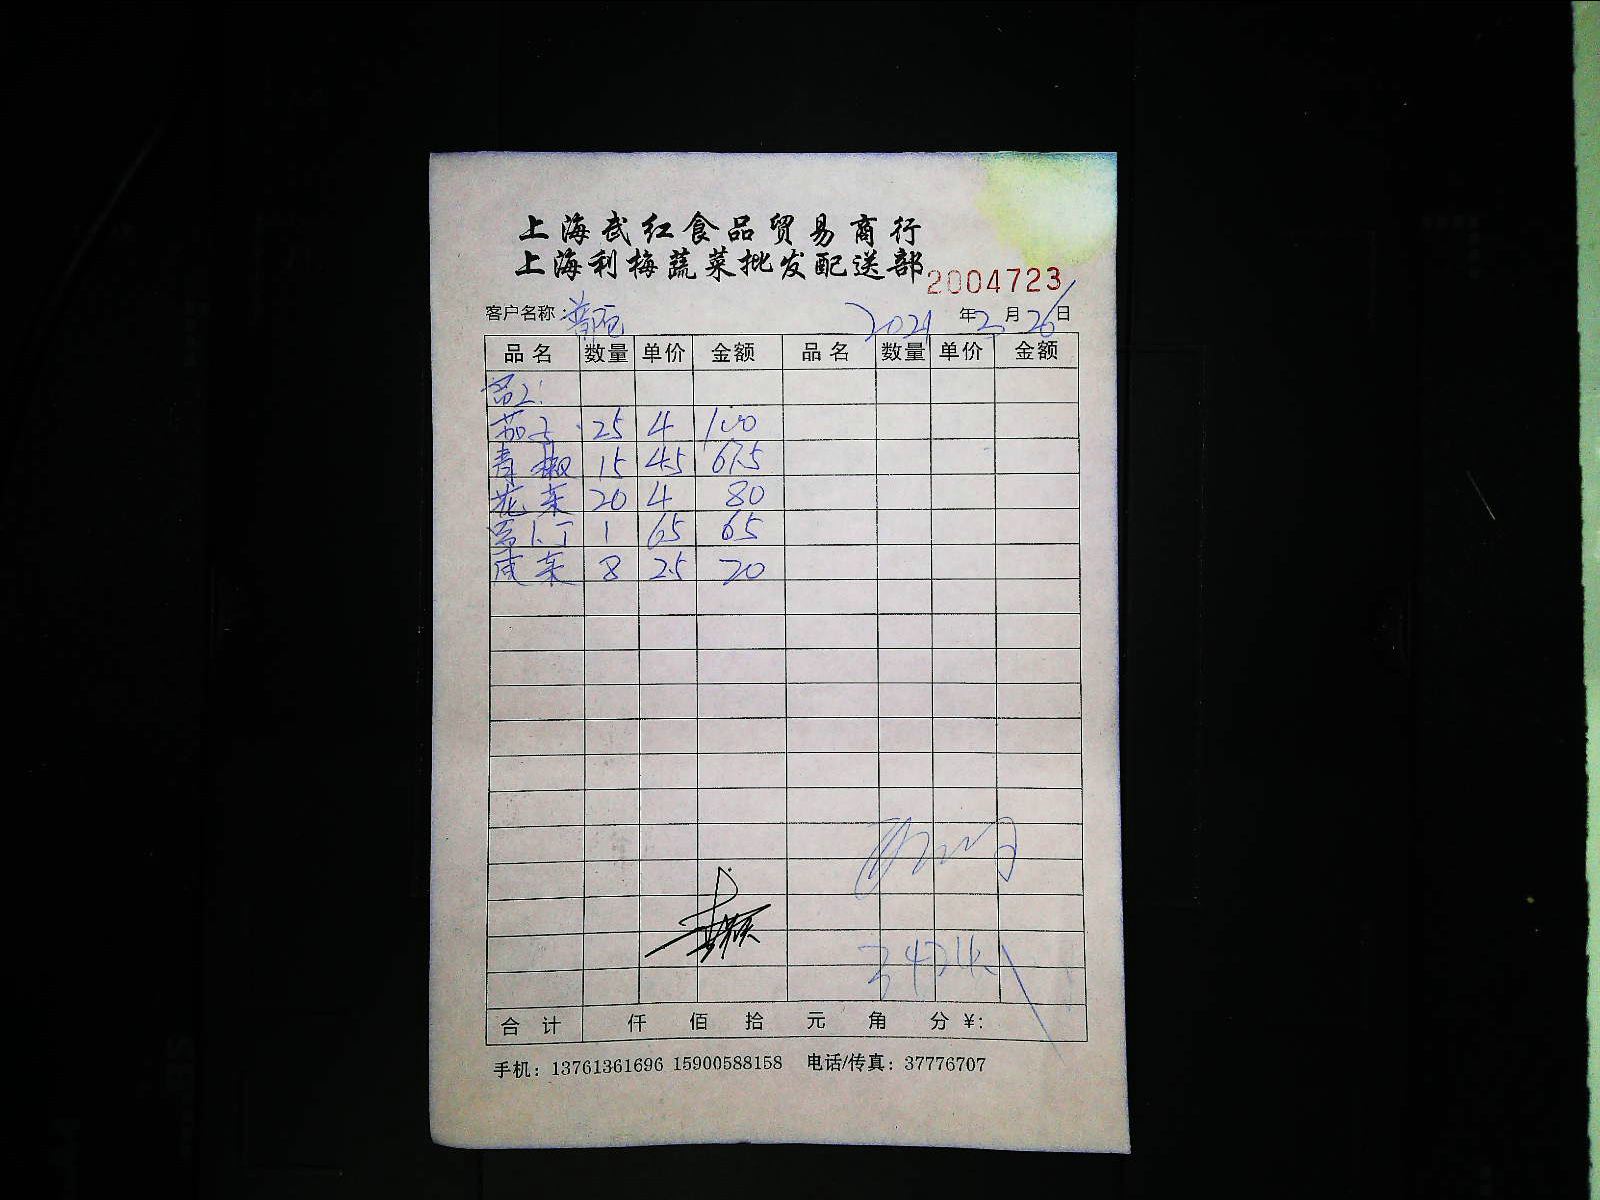 上海武红食品贸易商行
上海利梅蔬菜批发配送部
2004723
客户名称: 2021年2月26日
品名 数量 单价 金额 品名 数量 单价 金额
茄子 25 4 100
青椒 15 4.5 67.5
花菜 20 4 80
1 65 65
咸菜 8 2.5 20
合计 仟 佰 拾 元 角 分 ¥:
手机: 13761361696 15900588158 电话/传真: 37776707